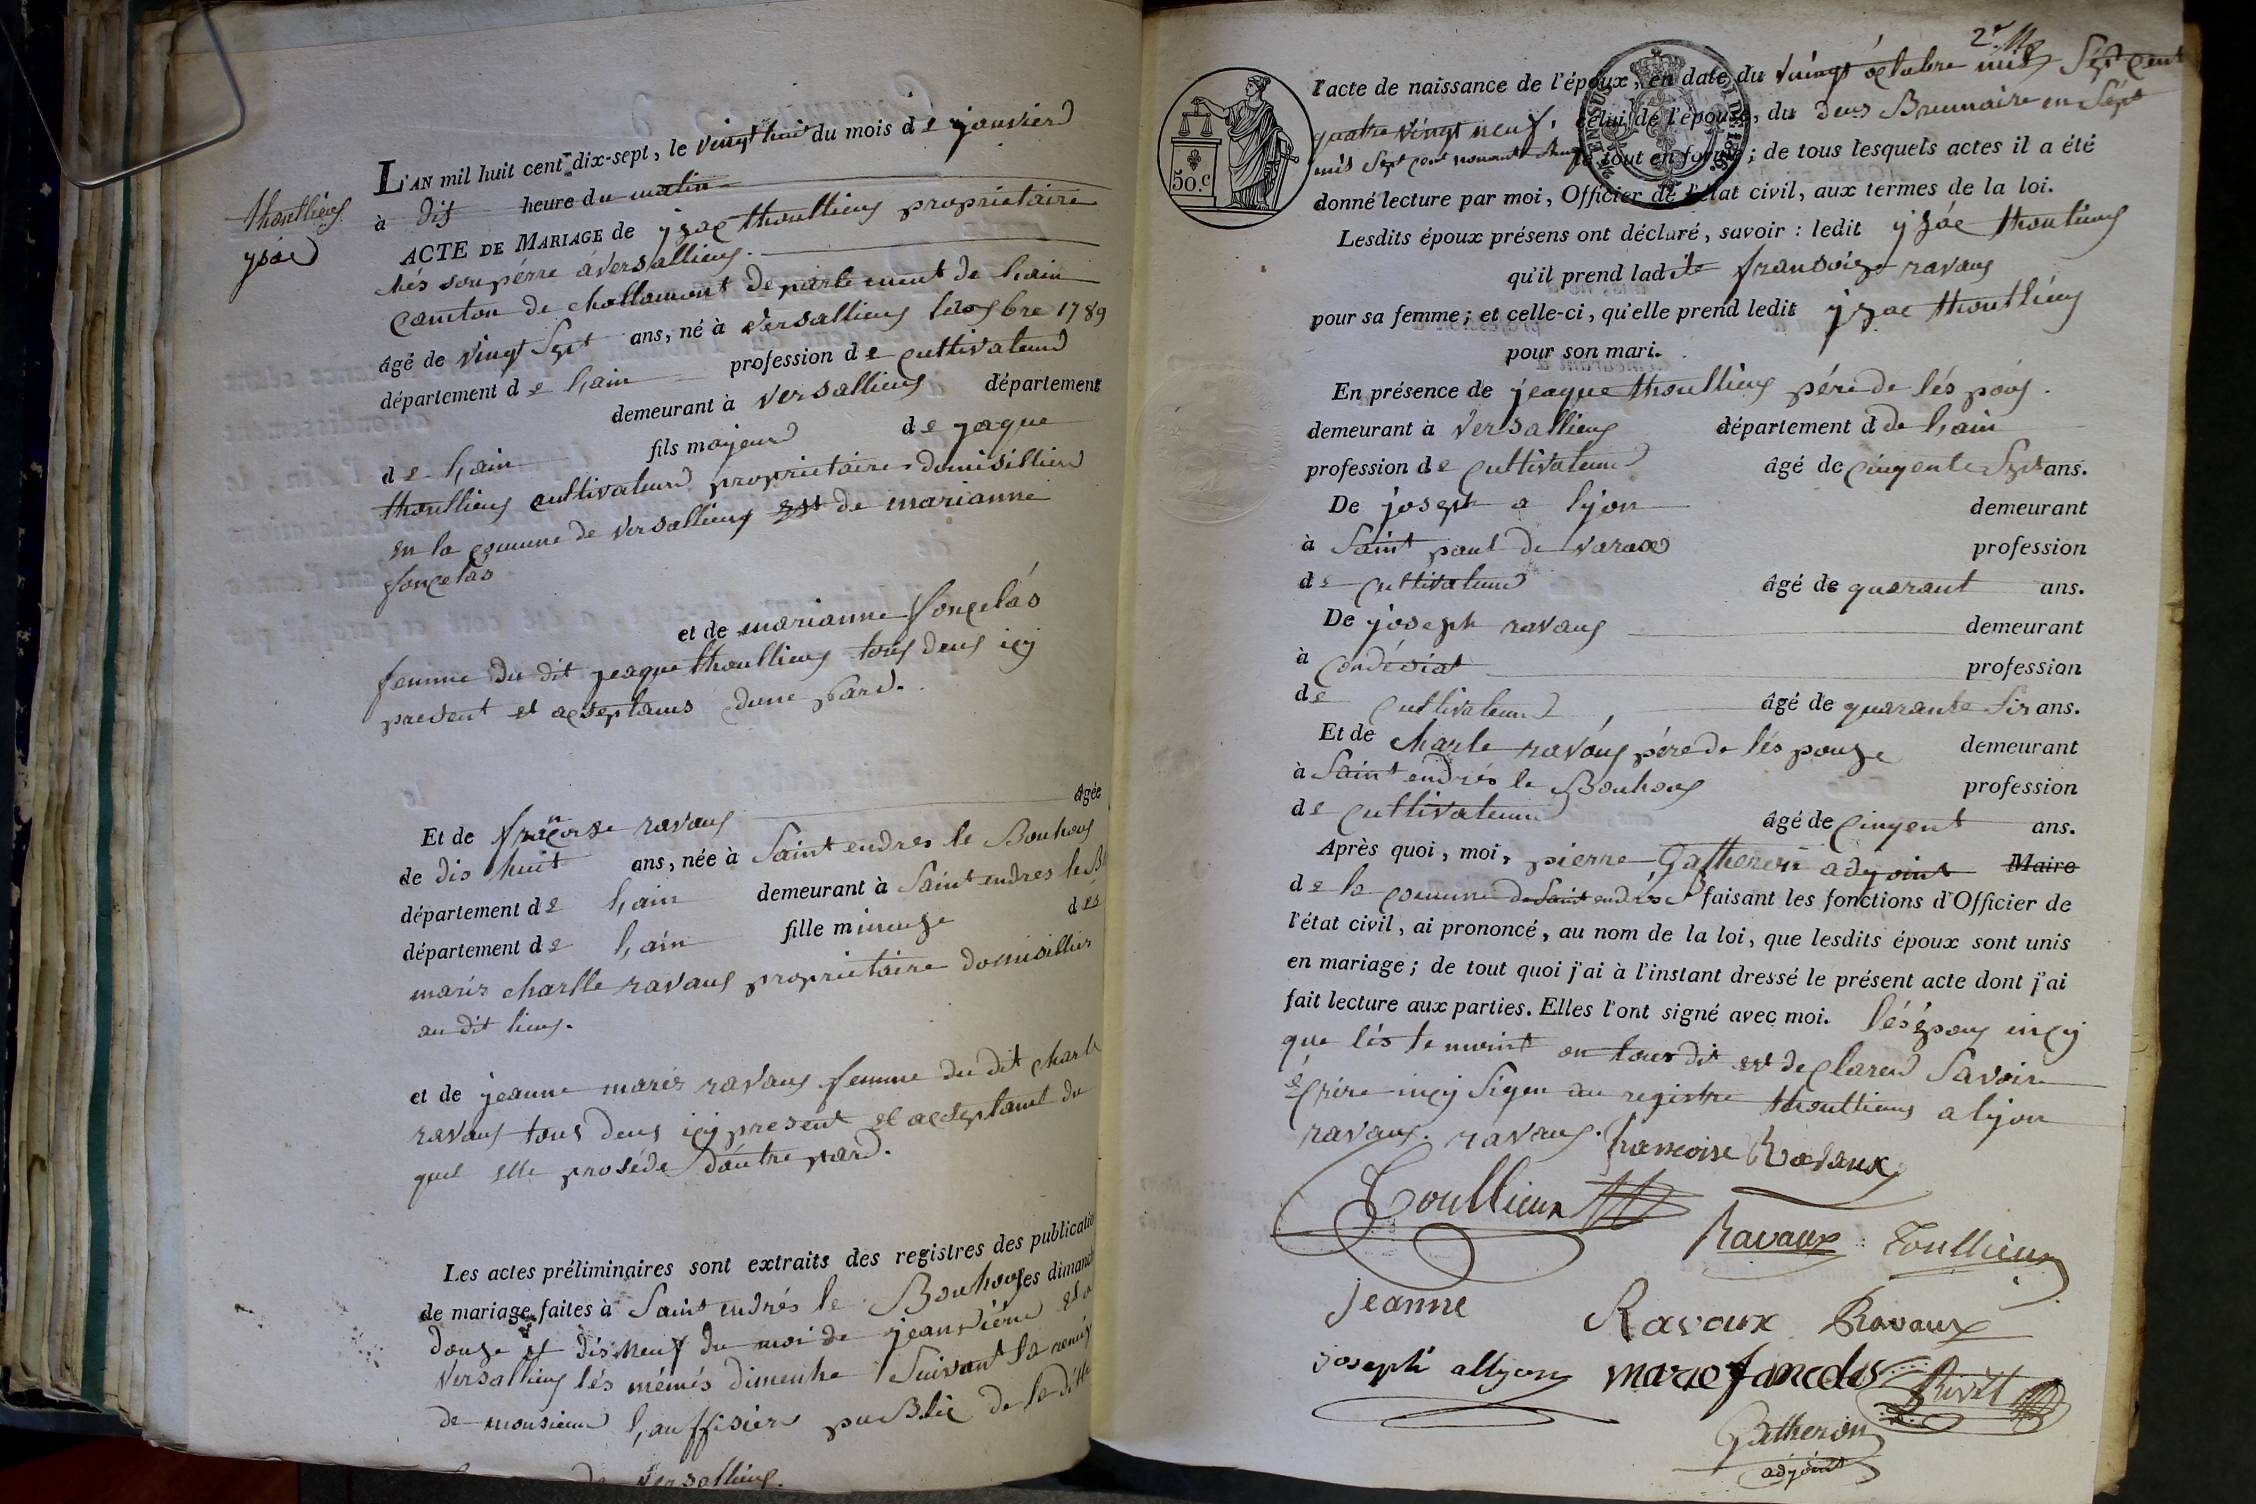 L'AN mil huit cent dix-sept, le vingt huit du mois de janvier
à dis heure du matin
thoullieus
ysàc
ACTE DE MARIAGE de yzac thoullieus proprietaire
chés son pérre à versallieus.
canton de challamont département de lain
âgé de vingt sept ans, né à versallieus 1789
département de lain profession de cultivateur
demeurant à versallieus département
de lain fils majeur de jaque
thoullieus cultivateur proprietaire domisillier
en la comune de versallieus et de marianne
foncelas
et de marianne foncelás
femme du dit jeaque thoullieus tous deus icy
present et acseptams dune pard.
Et de francoise ravaus âgée
de dis huit ans, née à Saint endres le Bouhous
département de lain demeurant à Saint endres le B
département de lain fille mineuze dés
mariés charlle ravaus proprietaire domisillier
au dit lieus.
et de jeanne mariez ravaus femme du dit charle
ravaus tous deus icy present et acseptant du
quel elle proséde dáutre pard.
Les actes préliminaires sont extraits des registres des publicatio
de mariage faites à Saint endrés le Bouhous les dimanch
douze et dis neuf du moi de jeanviéer et a
versallieus lés mémés dimenhe suivant la remis
de monsieur lauffisier publiç de la ditte
de versallieus.
2e
l'acte de naissance de l'époux, en date du vingt octobre mil sept cent
quatre vingt neuf, celui de l'épouse, du deus Brumaire en sépt
mil sept cent nonante le tout en forme; de tous lesquels actes il a été
donné lecture par moi, Officier de l'état civil, aux termes de la loi.
Lesdits époux présens ont déclaré, savoir : ledit yzác thoullieus
qu'il prend ladite fransoize ravaus
pour sa femme; et celle-ci, qu'elle prend ledit yzac thoullieus
pour son mari.
En présence de jeaque thoullieus pére de lés pous.
demeurant à versallieus département d de lain
profession de cultivateur âgé de cinqente sept ans.
De joseph a lyon demeurant
à Saint paul de varax profession
de cultivateur âgé de quarant ans.
De joseph ravaus demeurant
à condésiat profession
de cultivateur, âgé de quarante six ans.
Et de charle raváus pére de lés pouze demeurant
à Saint endrés le Bouhous profession
de cultivateur âgé de cinqent ans.
Après quoi, moi, pierre Gatheron adjoint Maire
de la comune de Saint endrés B faisant les fonctions d'Officier de
l'état civil, ai prononcé, au nom de la loi, que lesdits époux sont unis
en mariage; de tout quoi j'ai à l'instant dressé le présent acte dont j'ai
fait lecture aux parties. Elles l'ont signé avec moi. lés époux incy
que lés temoint on tous dit et declareu savoir
écrire incy signeu au registre thoullieus a lyon
ravaus. ravaus. francoise Ravaux
Toullieux
Ravaux Toullieux
jeanne Ravaux Ravaux
joseph allyon marie fancelas Rivet
Gatheron
adjoint
50.c